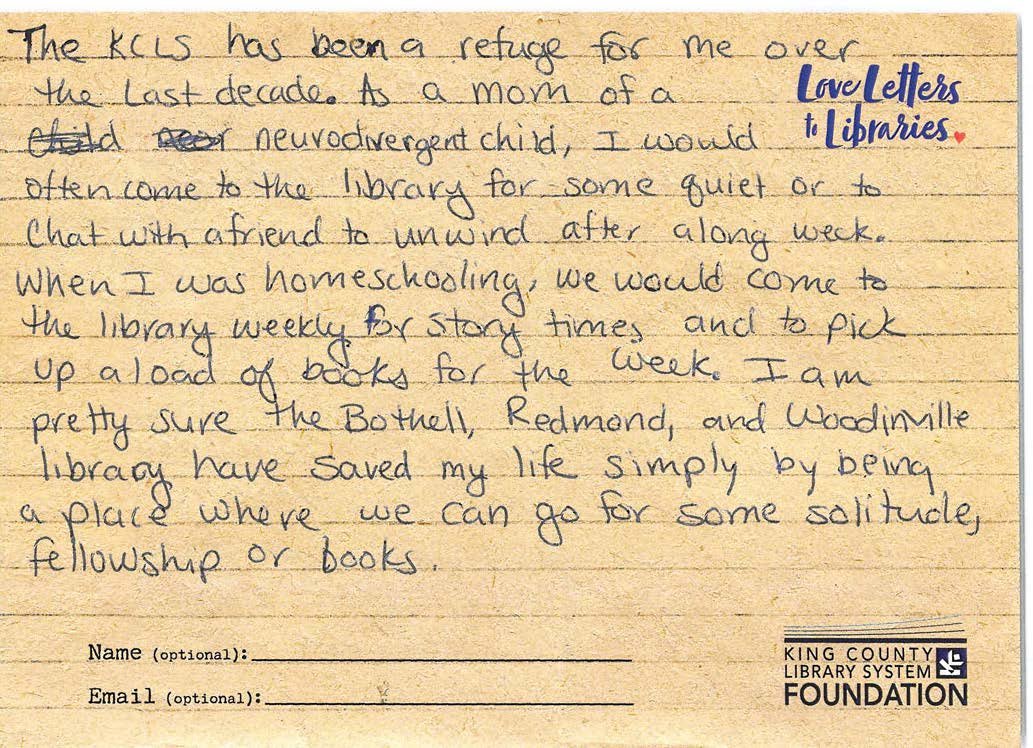 The KCLS has been a refuge for me over
the last decade. As a mom of a
Love Letters
to Libraries.
child neurodivergent child, I would
often come to the library for some quiet or to
Chat with a friend to unwind after a long week.
When I was homeschooling, we would come to
the library weekly for story times and to pick
up a load of books for the week. I am
pretty sure the Bothell, Redmond, and Woodinville
library have saved my life simply by being
a place where we can go for some solitude,
fellowship or books.
Name (optional):
Email (optional):
KING COUNTY
LIBRARY SYSTEM
FOUNDATION